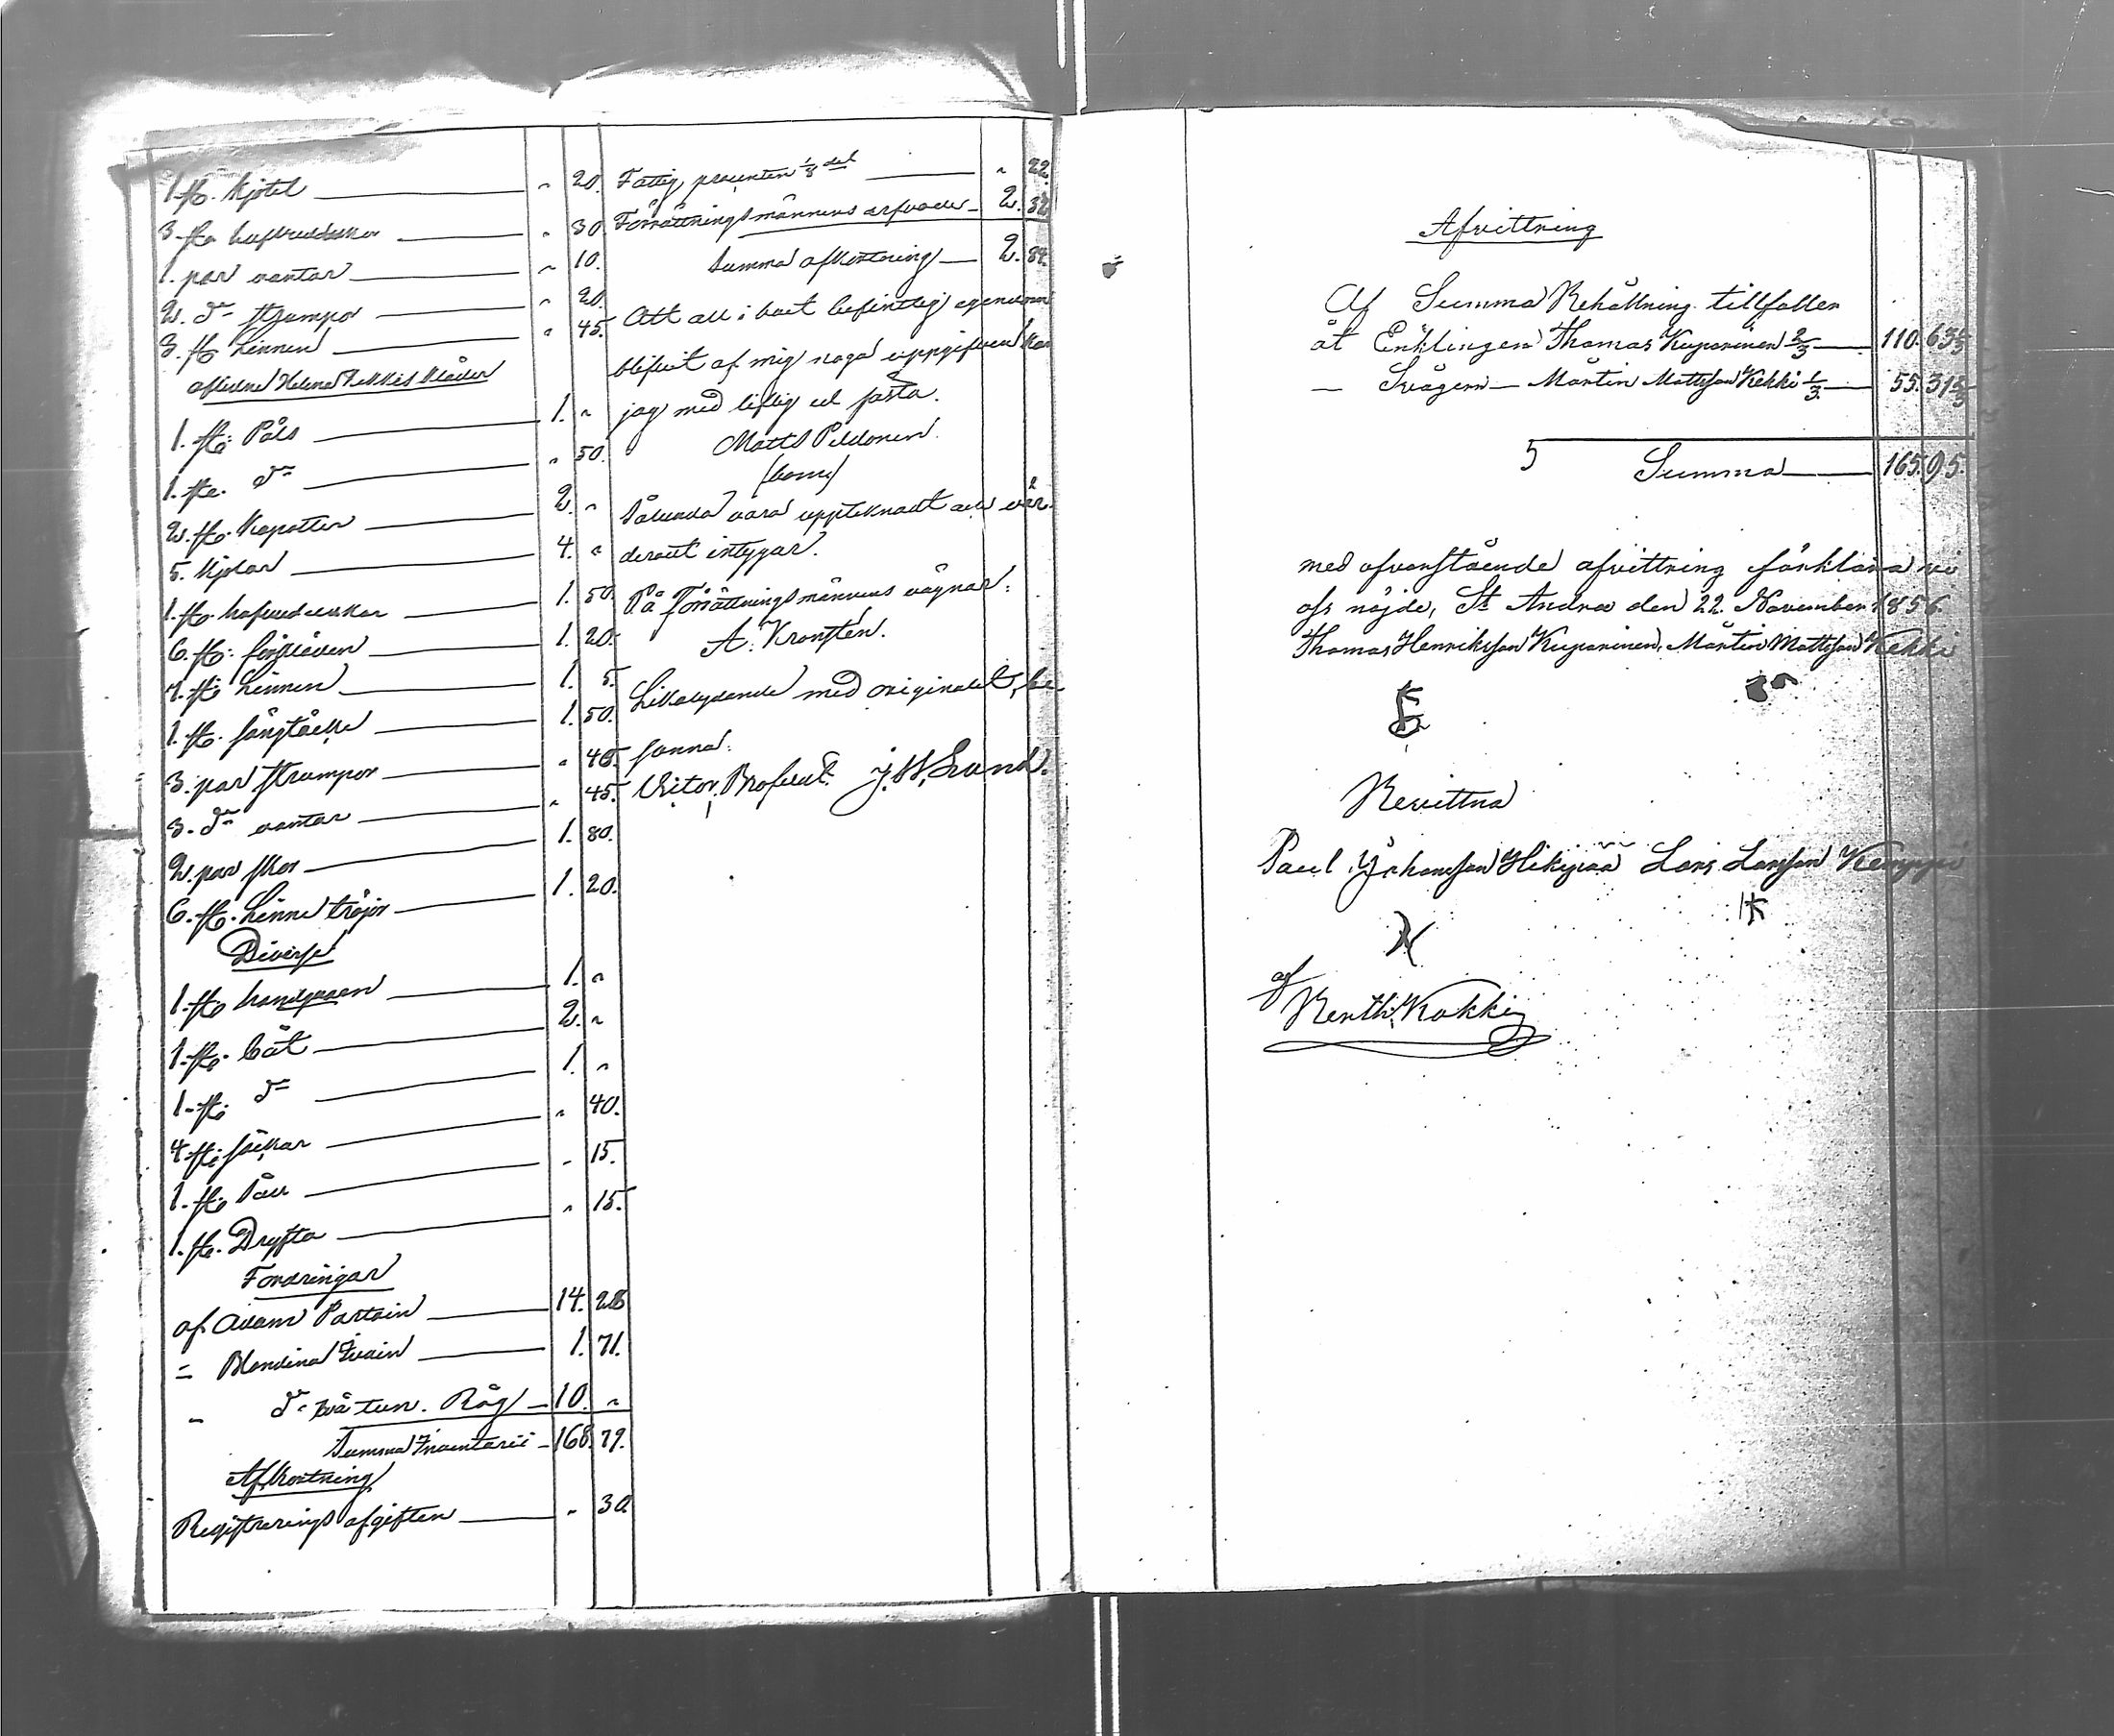 1. st. kjotel " 20.
3. st. hufvuddukar " 30
1. par vantar " 10.
2. do strumpor " 20.
3. st. Linnen " 45.
aflidne Helena Kekkis kläder
1. st. Påls 1. "
1. st. do " 50.
2. st. Kapotter 2. "
5. kjolar 4. "
1. st. hufvudduker 1. 50
6. st. förkläden 1. 20.
4. st. Linnen 1. 5.
1. st. sängtäcke 1. 50.
3. par strumpor " 40.
3. do vantar " 45.
2. par skor 1. 80.
6. st. Linne tröjor 1. 20.
Diverse
1. st. handqvarn 1. "
1. st. båt 2. "
1. st. do 1. "
4. st. säckar " 40.
1. st. Såll " 15.
1. st. Dryfta " 15.
Fordringar
af Adam Partain 14. 28
" Blondina Ivain 1. 71.
" do två tun. Råg 10. "
Summa Inventarii 168. 79.
Afkortning
Registrerings afgiften " 30
Fattig procenten 1/8 del " 22.
Förrättningsmännens arfvode 2. 32
Summa afkortning 2. 84.
Att all i boet befintlig egendom
blifvit af mig noga uppgifven kan
jag med liflig ed fästa.
Matts Peldonen
(bom)
Sålunda vara upptecknadt och vär-
deradt intygar.
På Förrättningsmännens vägnar:
A. Kronstén.
Likalydande med originalet, be-
sanna:
Victor Brofeldt. J. W. Lund.
Afvittring
Af Summa Behållning tillfaller
åt Enklingen Thomas Kuparinen 2/3 110. 63 1/3
— Svågern — Mårtin Mattsson Kekki 1/3 55. 31 2/3
5 Summa 165. 95.
med ofvanstående afvittring förklara vi
oss nöjde, St Andræ den 22. November 1856.
Thomas Henriksson Kuparinen, Mårtin Mattsson Kekki
Bevittna
Paul Johansson Hikipää Lars Larsson Kemppi
af
Benth: Kokki